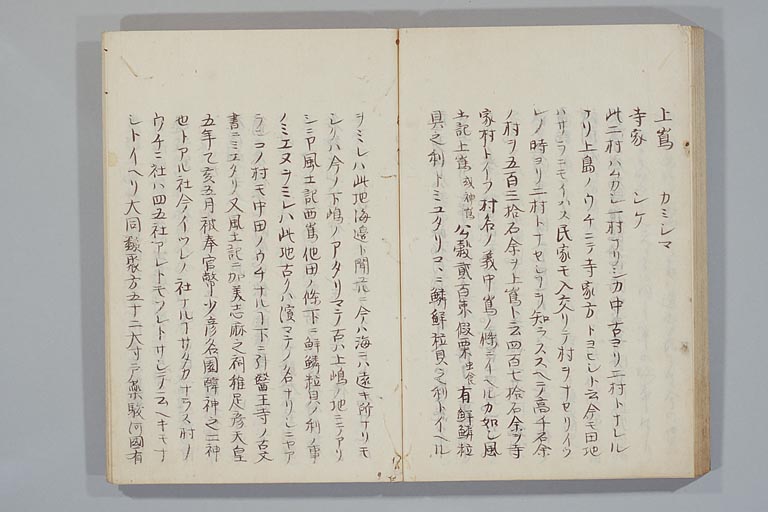 上嶌　カミシマ
寺家　シケ
此二村ハムカシ一村ナリシカ中古ヨリ二村トナレル
ナリ上島ノウチニテ寺家方トヨヒシト云今モ田地
ハサラニモイハス民家モ入交リテ村ヲナセリイツ
レノ時ヨリ二村トナセシヲ知ラススヘテ高千石余
ノ村ヲ五百三拾石余ヲ上嶌ト云四百七拾石余ヲ寺
家村トイフ村名ノ義中嶌ノ條ニイヘルカ如シ風
土記上嶌或神嶌公穀貳百束假粟虫食有鮮鱗粒
貝之利トミエタリコヽニ鱗鮮粒貝之利トイヘル
ヲミレハ此地海邉ト聞ユルニ今ハ海ニハ遠キ所ナリモ
シクハ今ノ下嶋ノアタリマテ古ハ上嶋ノ地ニテアリ
シニヤ風土記西嶌他田ノ條下ニ鮮鱗粒貝ノ利ノ事
ノミエヌヲミレハ此地古クハ濱マテノ名ナリシニヤア
ラニコノ村モ中田ノウチナルヿ下ニ引醫王寺ノ古文
書ニミエタリ又風土記ニ加美志麻之祠稚足彦天皇
五年乙亥五月被奉官幣少彦名園韓神之二神
也トアル社今イツレノ社ナルヿサタカナラス村ノ
ウチニ社ハ四五社アレトモソレトサシテ云ヘキモナ
シトイヘリ大同類聚方五十二大寸ニテ藥駿河國有